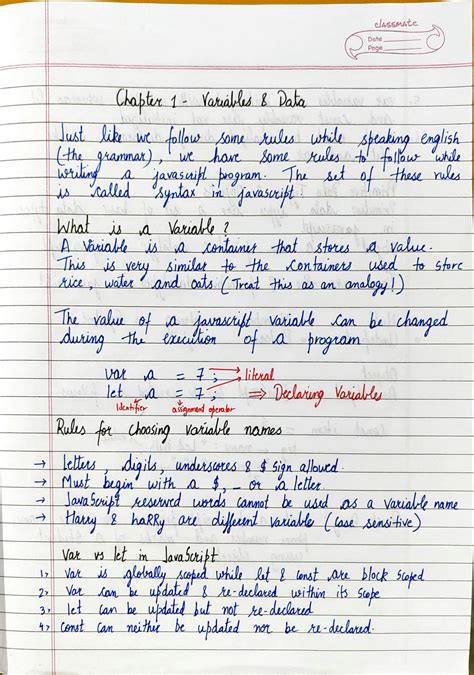 classmate
Date
Page
Chapter 1 - Variables & Data
Just like we follow some rules while speaking english
(the grammar), we have some rules to follow while
writing a javascript program. The set of these rules
is called syntax in javascript.
What is a Variable?
A Variable is a container that stores a value.
This is very similar to the containers used to store
rice, water and oats (Treat this as an analogy!)
The value of a javascript variable can be changed
during the execution of a program
var a = 7; → literal
let a = 7; ⇒ Declaring Variables
Identifier assignment operator
Rules for choosing variable names
→ Letters, digits, underscores & $ sign allowed.
→ Must begin with a $, _ or a letter.
→ JavaScript reserved words cannot be used as a variable name
→ Harry & haRRy are different variable (case sensitive)
Var vs let in JavaScript
1→ Var is globally scoped while let & const are block scoped
2→ Var can be updated & re-declared within its scope
3→ let can be updated but not re-declared
4→ const can neither be updated nor be re-declared.